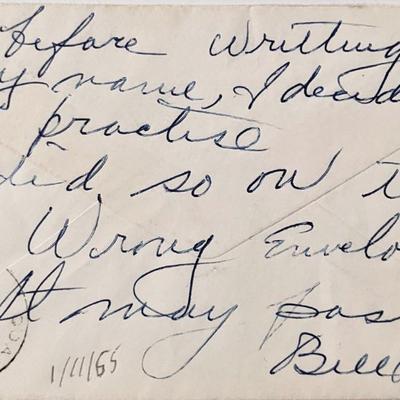 before writting
y name, I decid
practise
did so on t
Wrong Envelo
It may pas
Bill
1/11/65